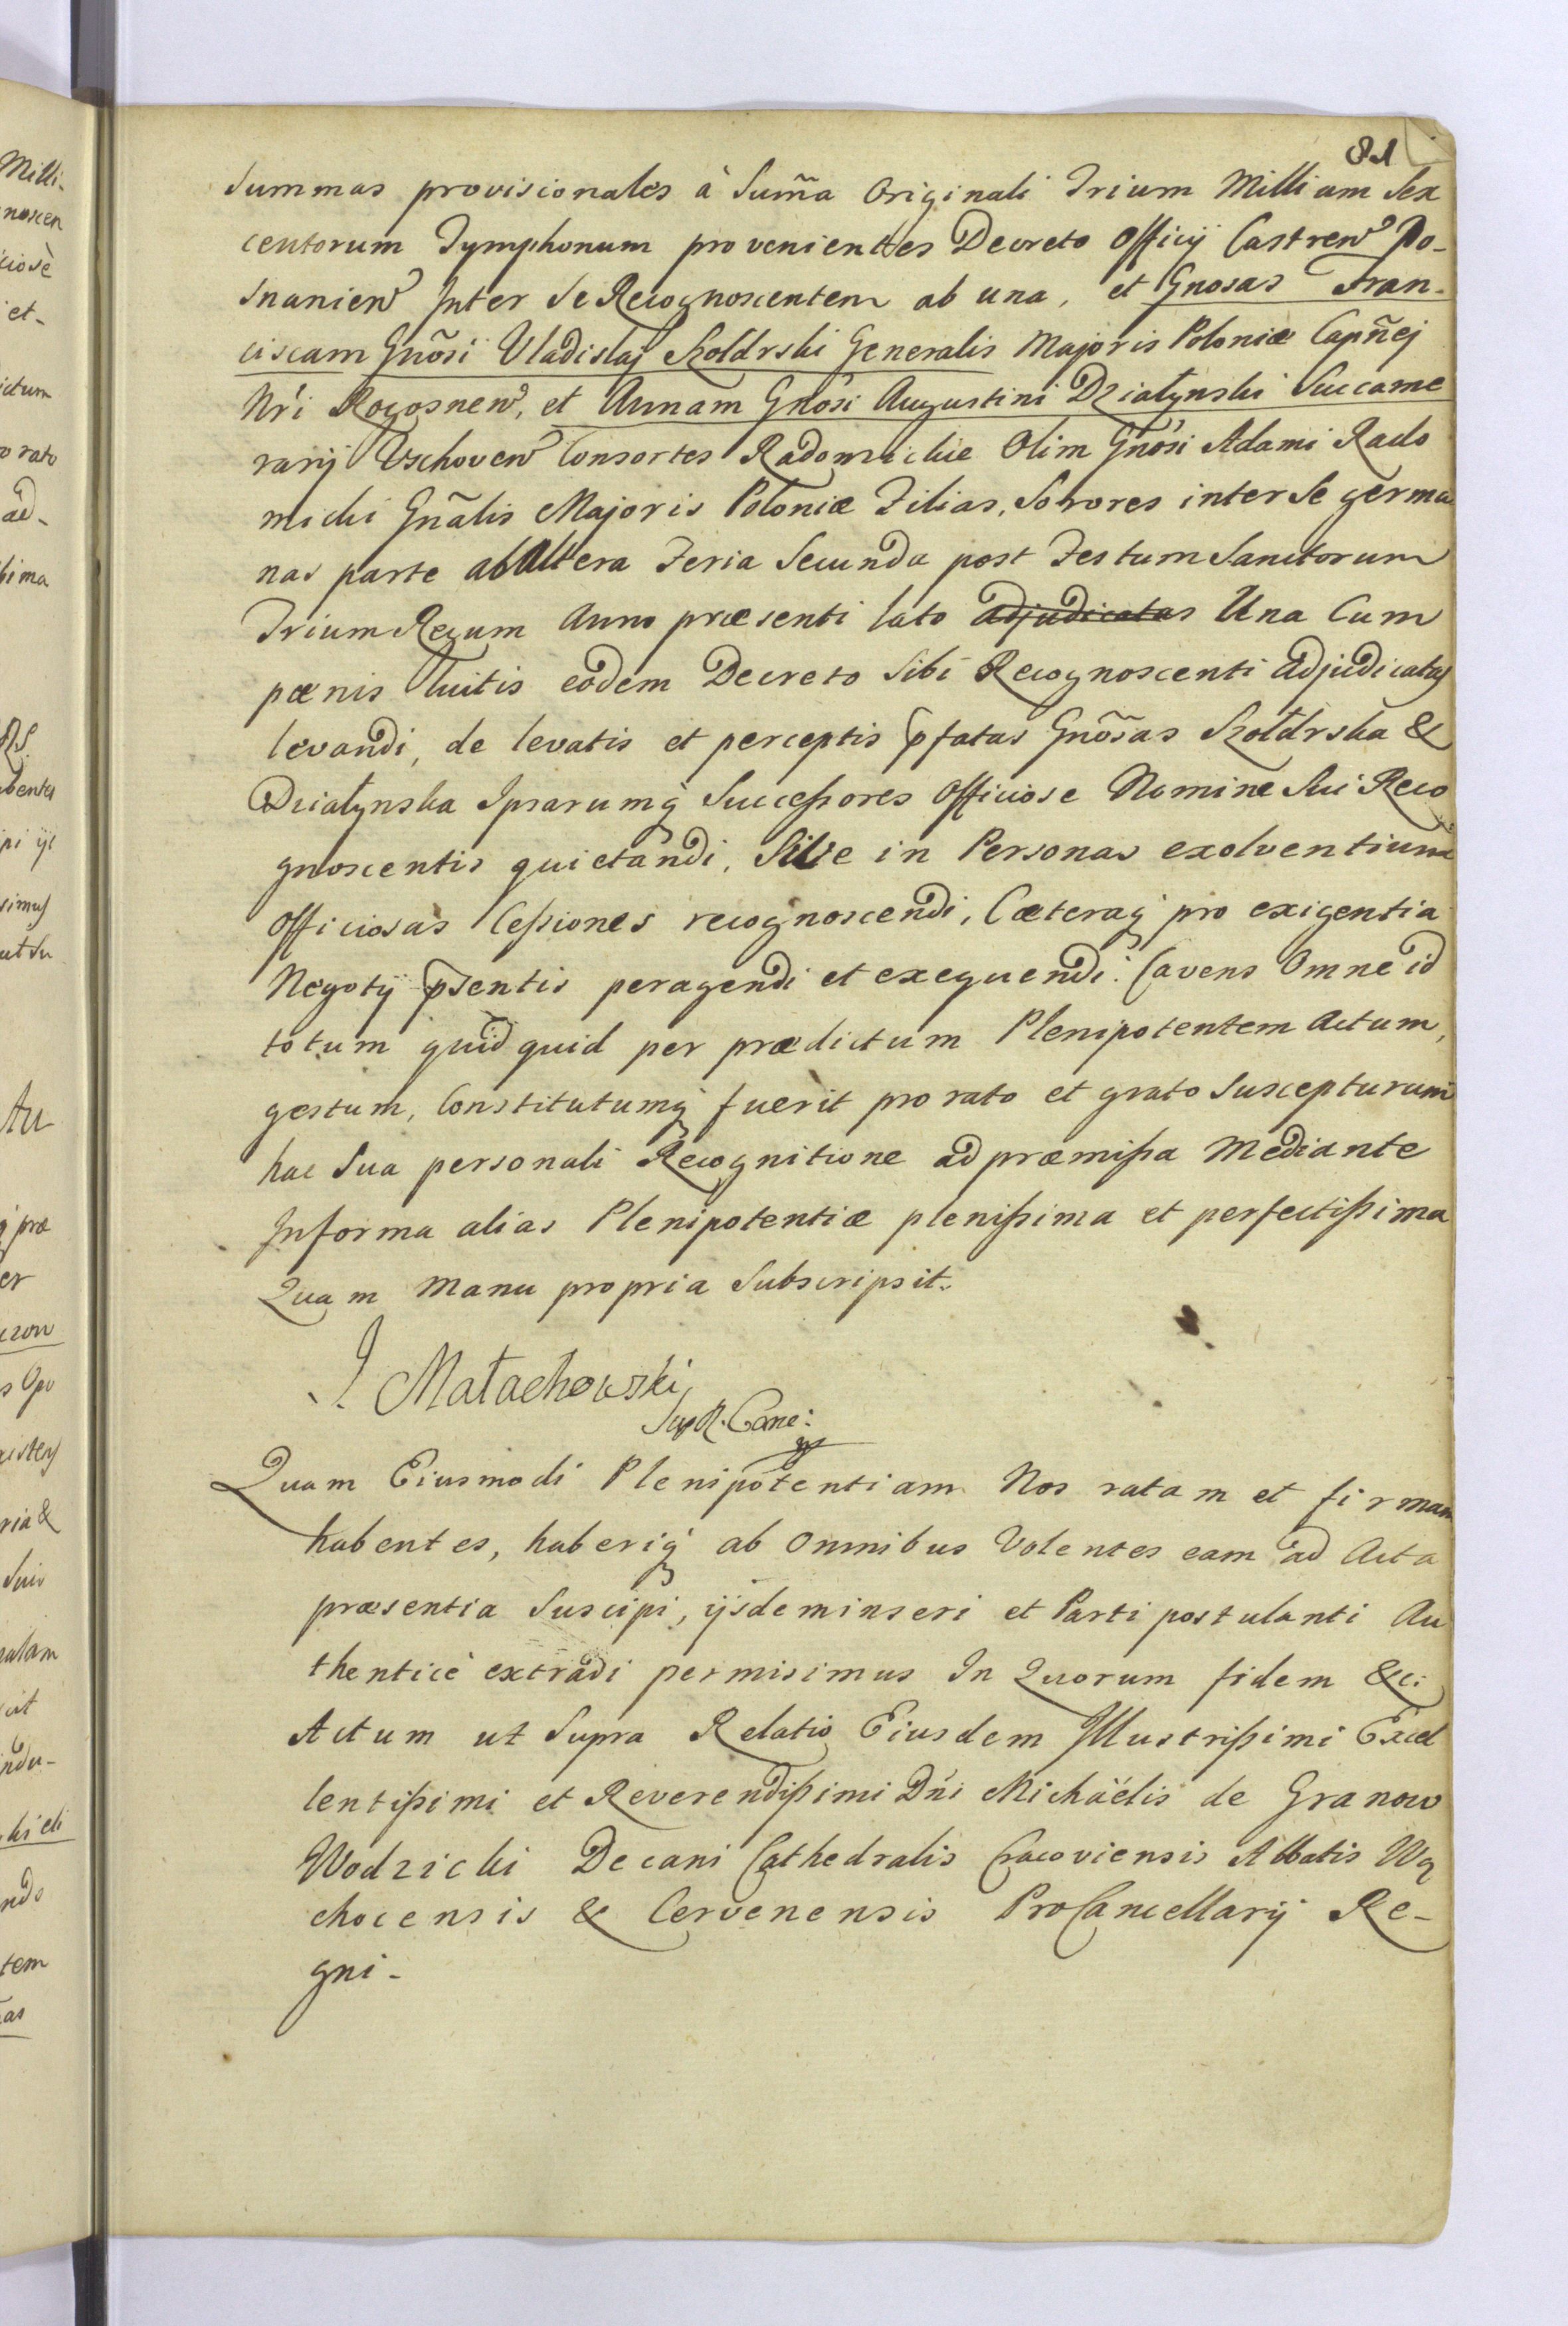 81
Summas provisionales à Sum̃a Originali Trium Millium Sex
centorum Tymphonum provenientes Decreto Officij Castren̄ Po-
snanien̄ Inter Se Recognoscentem ab una, et Gnosas Fran-
ciscam Gnõsi Vladislaj Szoldrski Generalis Majoris Poloniæ Capñej
Nr̃i Rogosnen̄, et Annam Gnõsi Augustini Działynski Succame
rarij Wschoven̄ Consortes Radomickie Olim Gnõsi Adami Rado
micki Gnãlis Majoris Poloniæ Filias, Sorores inter Se germa
nas parte ab Altera Feria Secunda post Festum Sanctorum
Trium Regum Anno præsenti lato adjudicatas Una Cum
pœnis luitis eodem Decreto Sibi Recognoscenti adjudicatas
levandi, de levatis et perceptis p̃fatas Gnõsas Szołdrska &
Działynska Ipsarumq̃ Successores Officiose Nomine Sui Reco
gnoscentis quietandi, Sive in Personas exolventium
Officiosas Cessiones recognoscendi, Cæteraq̃ pro exigentia
Negotij p̃sentis peragendi et exequendi. Cavens Omne id
totum quidquid per prædictum Plenipotentem Actum,
gestum, Constitutumq̃ fuerit pro rato et grato Suscepturum
hac Sua personali Recognitione ad præmissa Mediante
In forma alias Plenipotentiæ plenissima et perfectissima
Quam Manu propria Subscripsit.
J. Małachowski
Sup R. Canc:
Quam Eiusmodi Plenipotentiam Nos ratam et firmam
habentes, haberiq̃ ab Omnibus Volentes eam ad Acta
præsentia Suscipi, ijsdem inseri et Parti postulanti Au
thenticè extradi permisimus In Quorum fidem &c:
Actum ut Supra Relatio Eiusdem Illustrissimi Excel
lentissimi et Reverendissimi Dñi Michäelis de Granow
Wodzicki Decani Cathedralis Cracoviensis Abbatis Wą
chocensis & Cervenensis ProCancellarij Re-
gni-